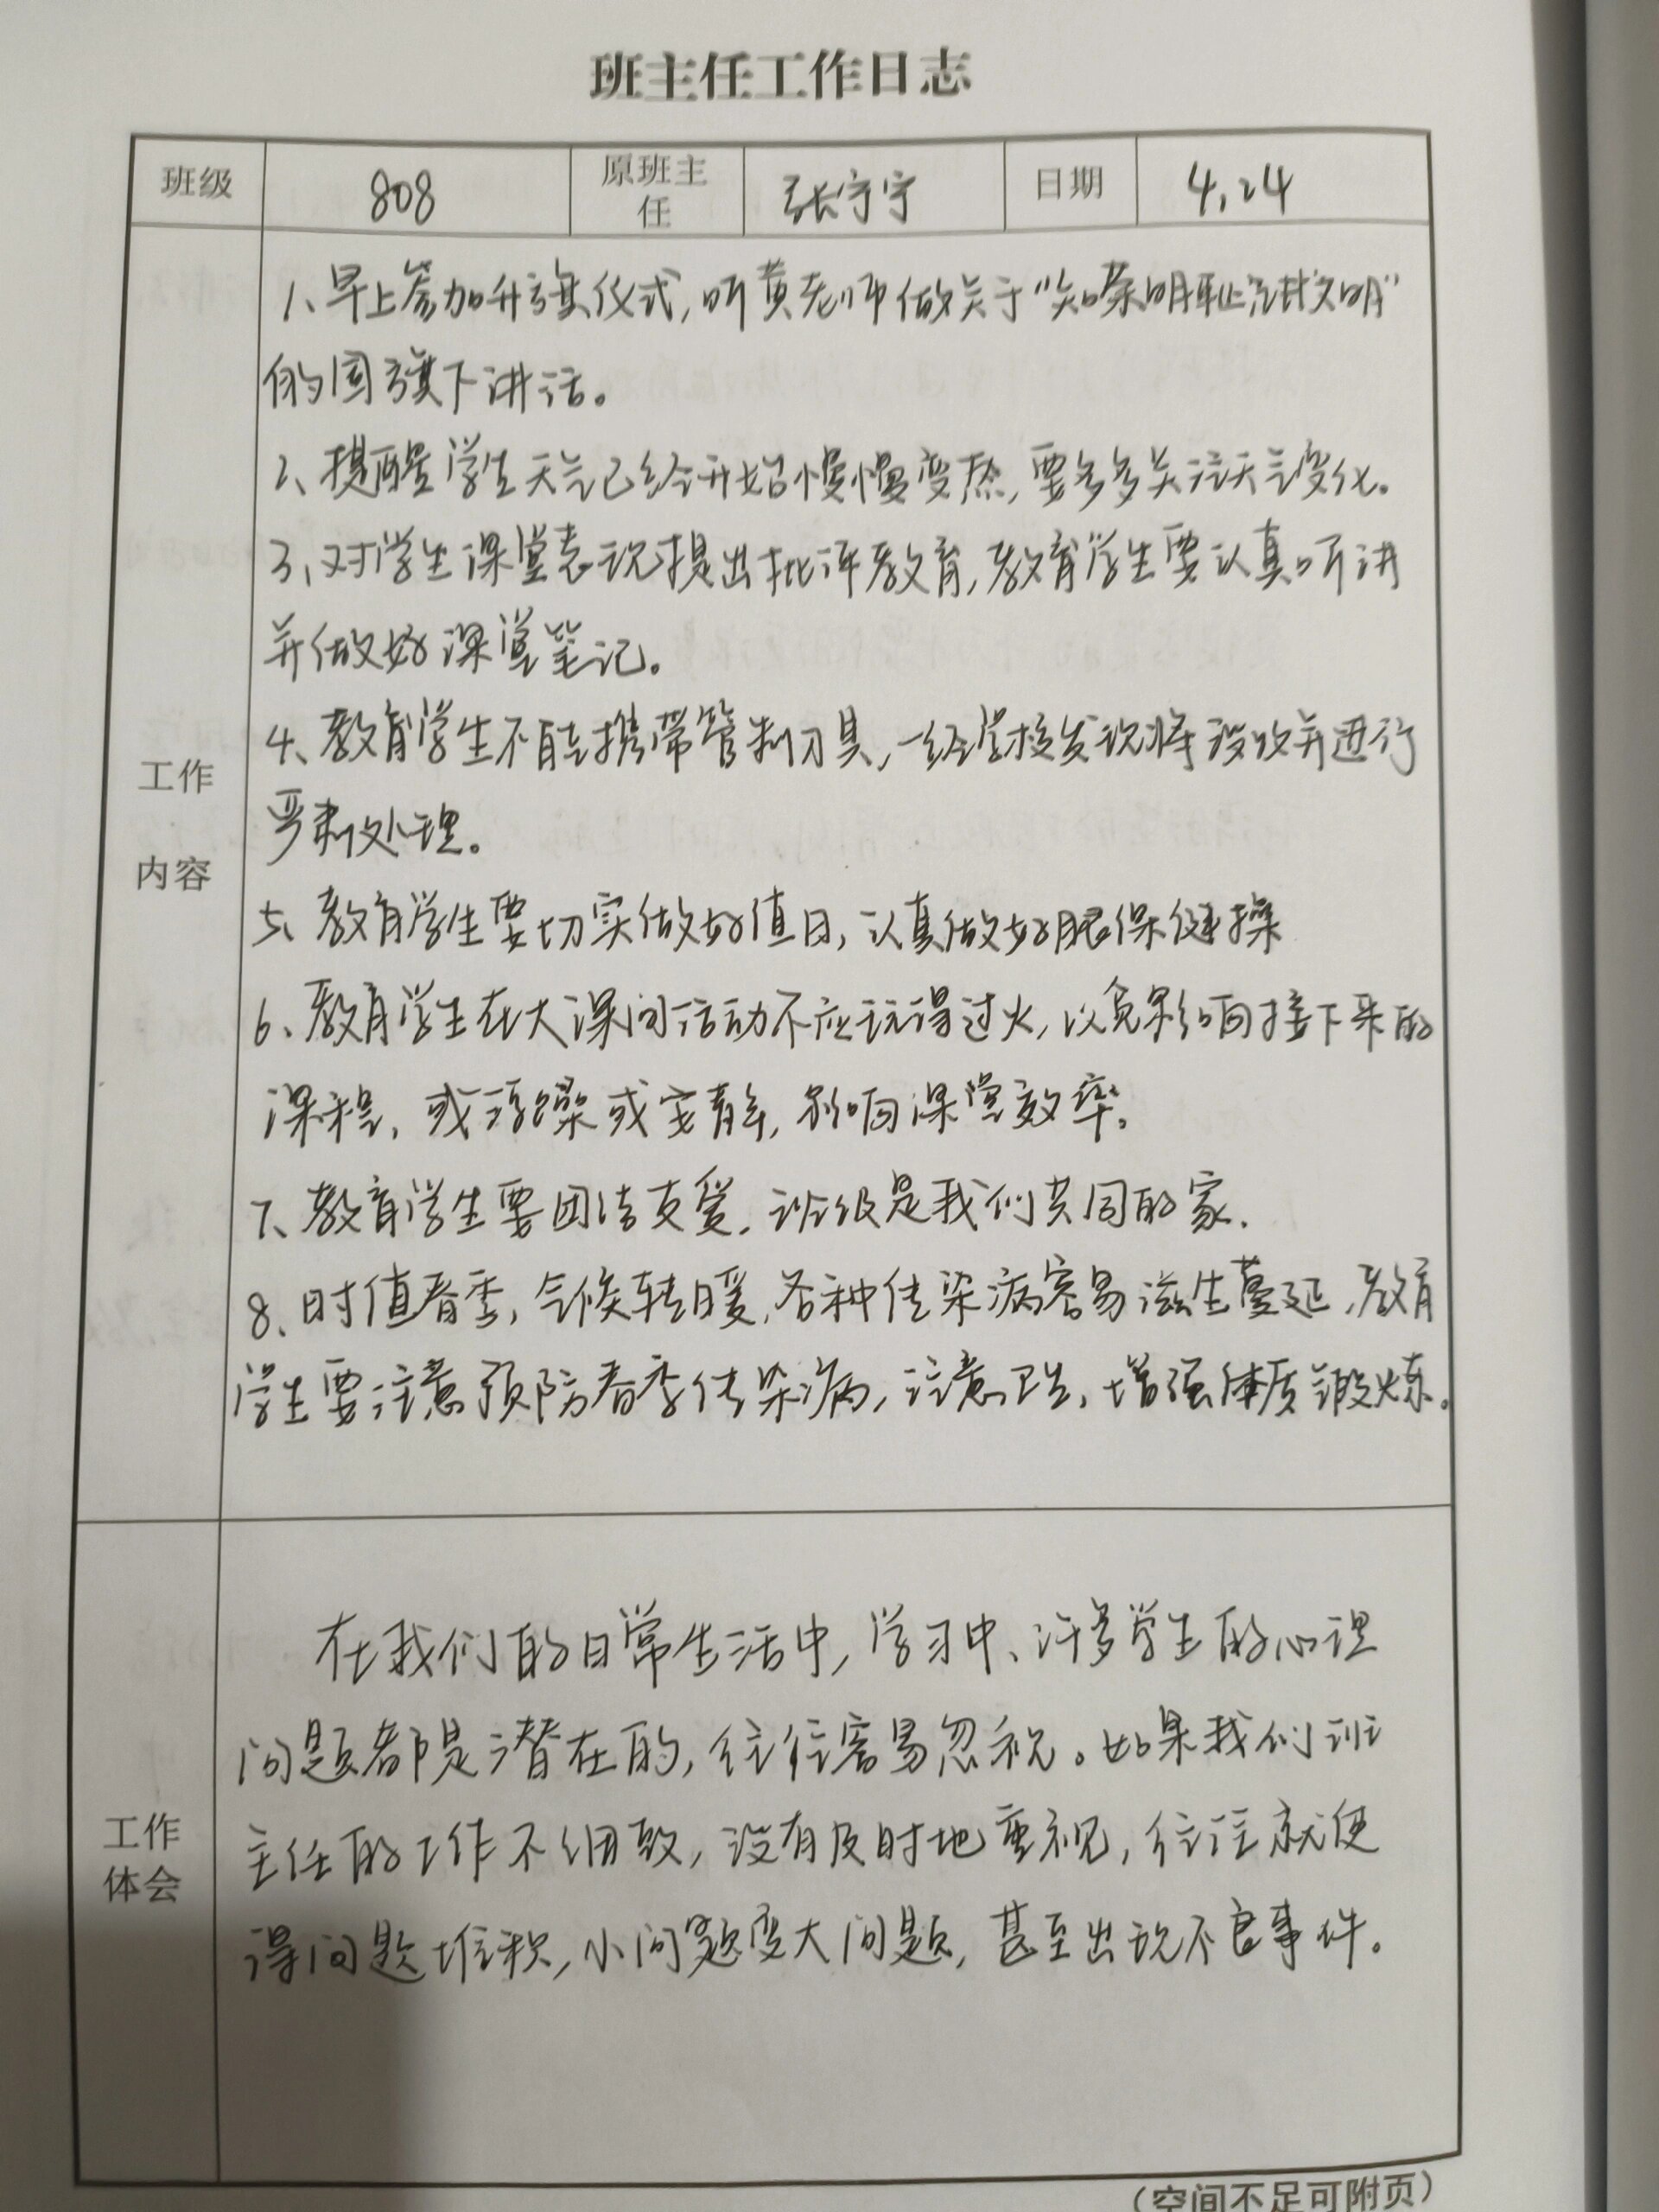 班主任工作日志
班级 808 原班主任 张宁宁 日期 4.24
1、早上参加升旗仪式,听黄老师做关于“知荣明耻讲文明”
的国旗下讲话。
2、提醒学生天气已经开始慢慢变热,要多多关注天气变化。
3、对学生课堂表现提出批评教育,教育学生要认真听讲
并做好课堂笔记。
4、教育学生不能携带管制刀具,一经学校发现将没收并进行
严肃处理。
5、教育学生要切实做好值日,认真做好眼保健操
6、教育学生在大课间活动不应玩得过火,以免影响接下来的
课程,或浮躁或安静,影响课堂效率。
7、教育学生要团结友爱.班级是我们共同的家.
8、时值春季,气候转暖,各种传染病容易滋生蔓延,教育
学生要注意预防春季传染病,注意卫生,增强体质锻炼。
工作
内容
在我们的日常生活中,学习中、许多学生的心理
问题都是潜在的,往往容易忽视。如果我们班
主任的工作不细致,没有及时地重视,往往就使
得问题堆积,小问题变大问题,甚至出现不良事件。
工作
体会
(空间不足可附页)